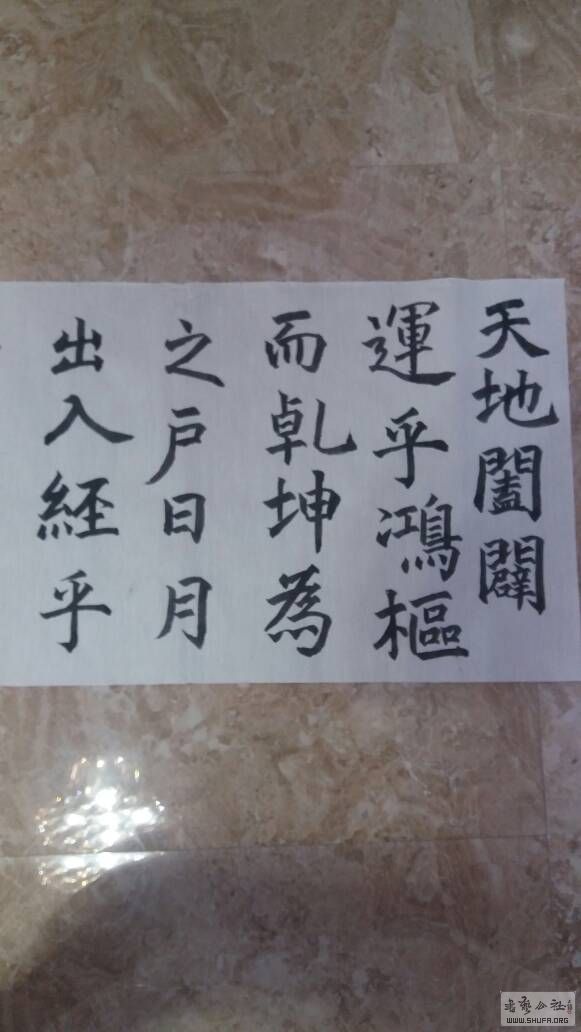 天地闔闢
運乎鴻樞
而乹坤為
之戶日月
出入經乎
WWW.SHUFA.ORG